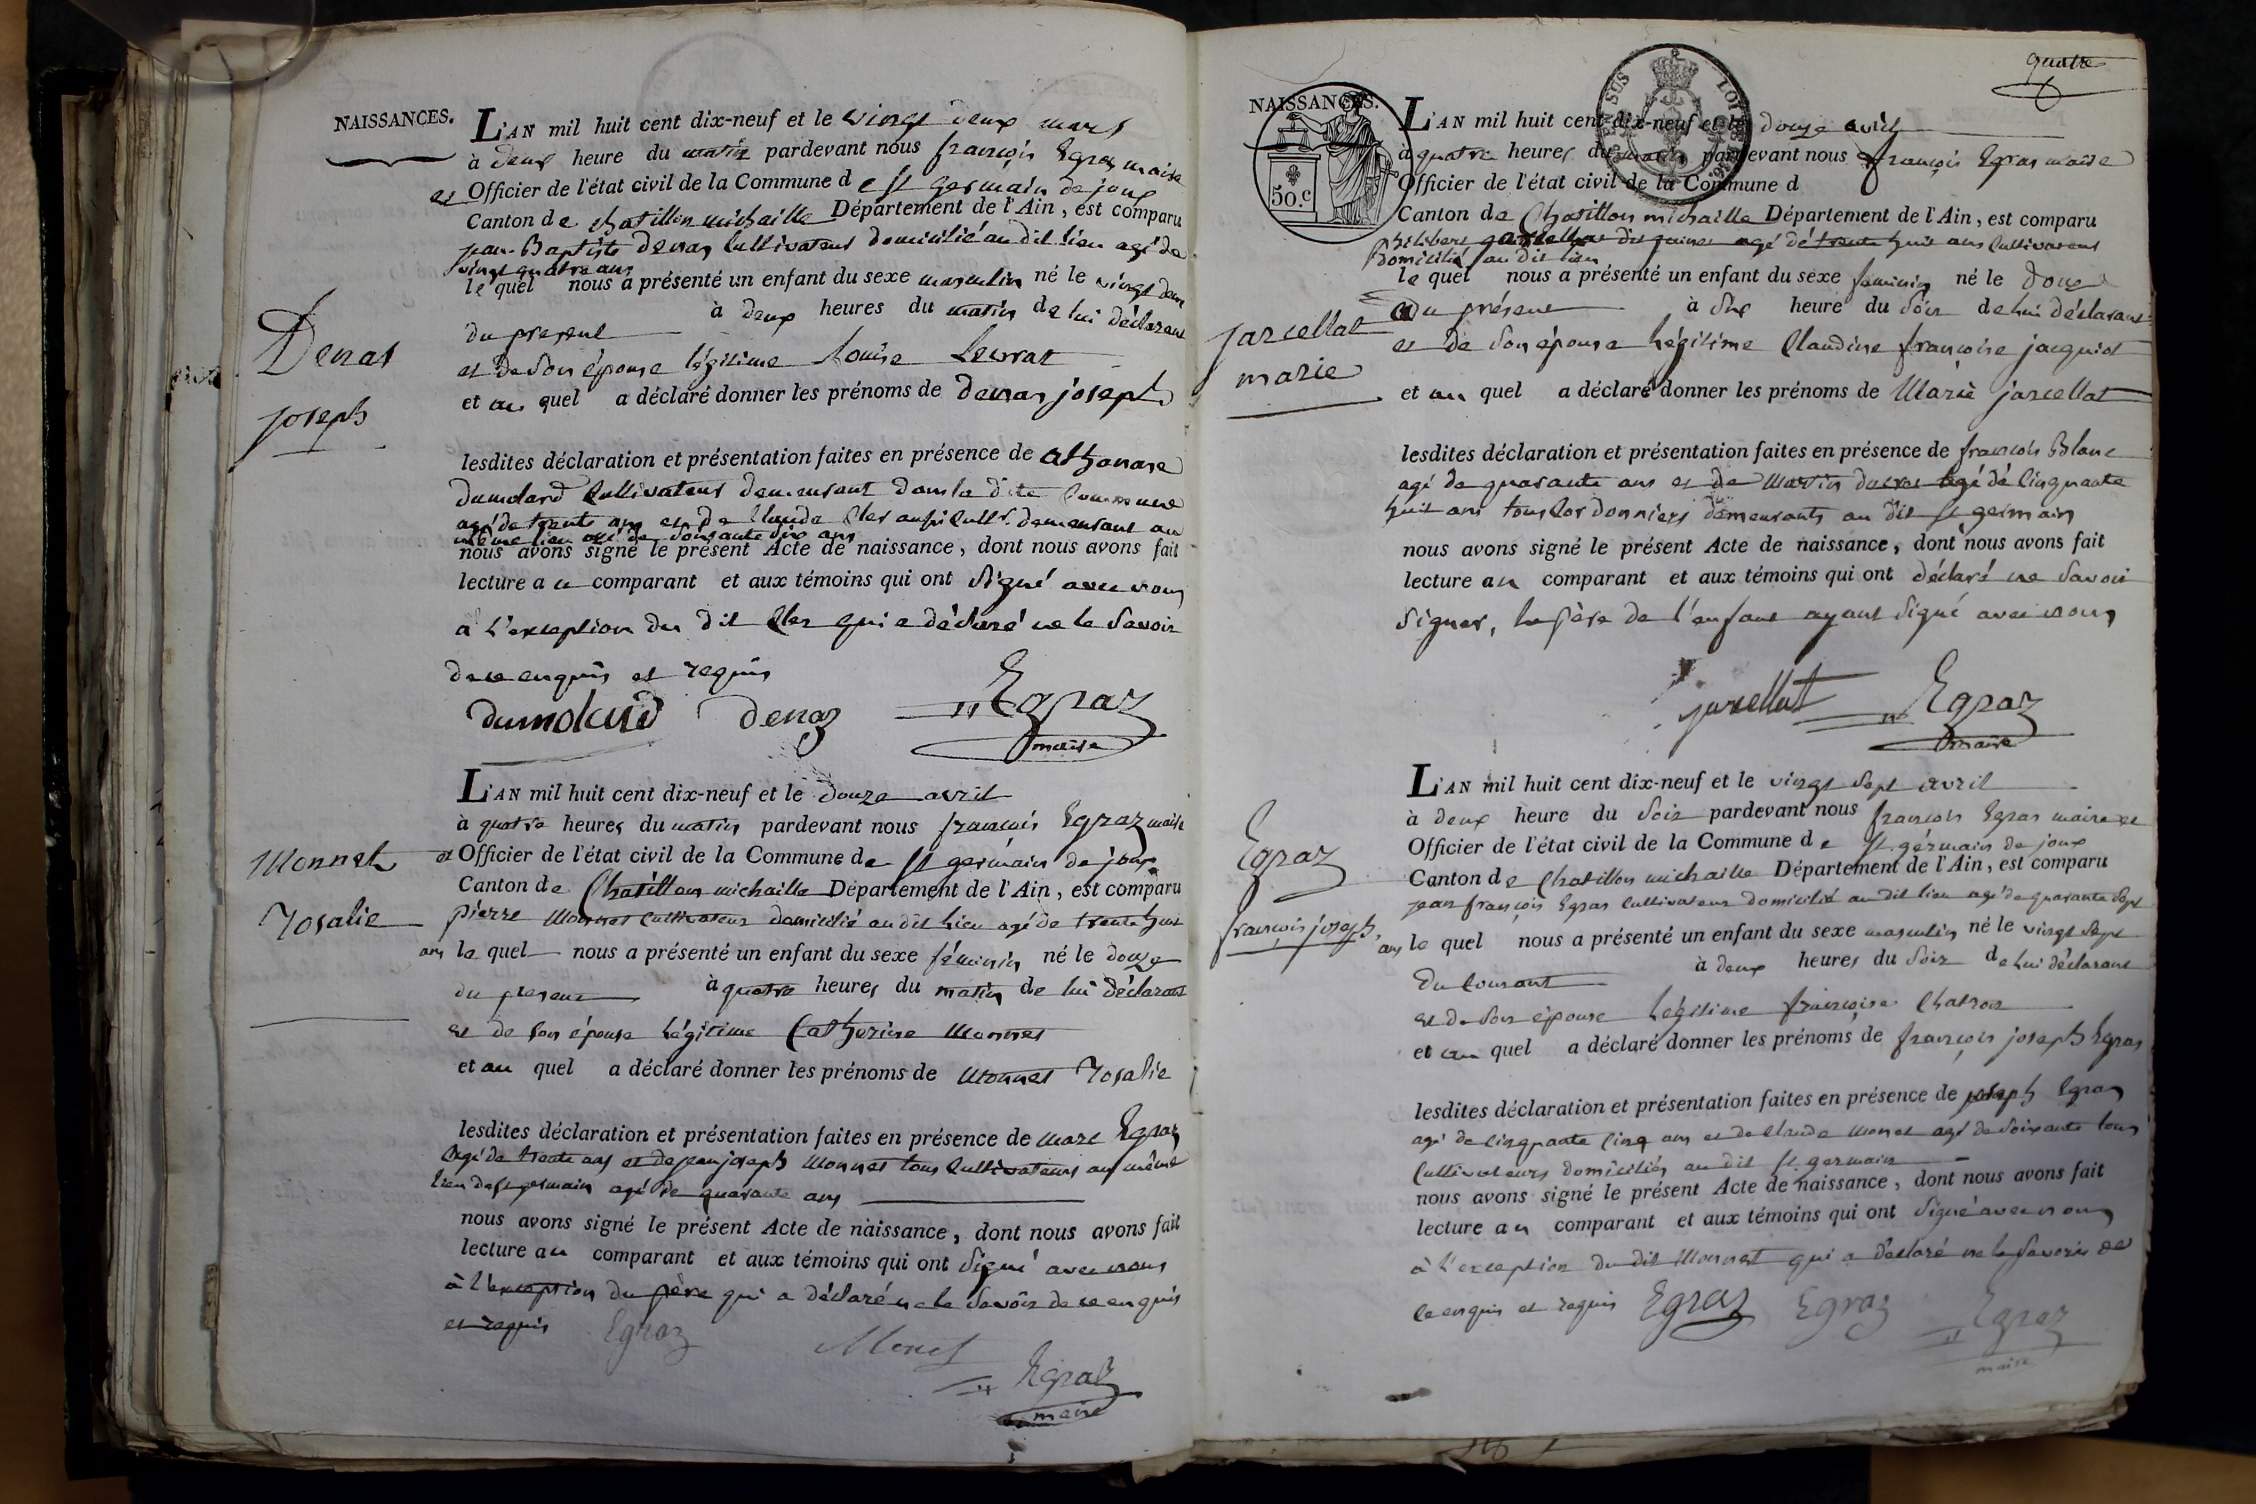 NAISSANCES.
L'AN mil huit cent dix-neuf et le vingt deux mars
à deux heure du matin pardevant nous françois Egraz maire
et Officier de l'état civil de la Commune de St germain de joux
Canton de chatillon michaille Département de l'Ain, est comparu
jean-Baptiste Denaz Cultivateur domicilié au dit lieu agé de
vingt quatre ans
le quel nous a présenté un enfant du sexe masculin né le vingt deux
du present à deux heures du matin de lui déclarant
et de son épouse légitime Louise Levrat
et au quel a déclaré donner les prénoms de denaz joseph
Denat
joseph
lesdites déclaration et présentation faites en présence de athanase
dumolard Cultivateur demeurant dans la dite Commune
agé de trente ans et de Claude Cler aussi Cultr. demeurant au
même lieu agé de soixante dix ans
nous avons signé le présent Acte de naissance, dont nous avons fait
lecture au comparant et aux témoins qui ont signé avec nous
à l'exception du dit Cler qui a déclaré ne le savoir
de ce enquis et requis
dumolard denaz Egraz
maire
L'AN mil huit cent dix-neuf et le douze avril
à quatre heures du matin pardevant nous françois Egraz maire
et Officier de l'état civil de la Commune de St germain de joux
Canton de Chatillon michaille Département de l'Ain, est comparu
pierre Monnet Cultivateur domicilié au dit lieu agé de trente huit
ans le quel nous a présenté un enfant du sexe féminin né le douze
du present à quatre heures du matin de lui déclarant
et de son épouse légitime Catherine Monnet
et au quel a déclaré donner les prénoms de Monnet Rosalie
Monnet
Rosalie
lesdites déclaration et présentation faites en présence de marc Egraz
agé de trente ans et de jean joseph Monnet tous Cultivateurs au même
lieu de St germain agé de quarante ans
nous avons signé le présent Acte de naissance, dont nous avons fait
lecture au comparant et aux témoins qui ont signé avec nous
à l'exception du père qui a déclaré ne le savoir de ce enquis
et requis Egraz Monet
Egraz
maire
quatre
NAISSANCES.
50.c
L'AN mil huit cent dix-neuf et le douze avril
à quatre heures du matin pardevant nous françois Egraz maire
Officier de l'état civil de la Commune d
Canton de Chatillon michaille Département de l'Ain, est comparu
philibert jarcellat dit agé de trente huit ans Cultivateur
Domicilié au dit lieu
le quel nous a présenté un enfant du sexe feminin né le douze
du présent à heure du soir de lui déclarant
et de son épouse légitime Claudine françoise jacquiot
et au quel a déclaré donner les prénoms de Marie jarcellat
jarcellat
marie
lesdites déclaration et présentation faites en présence de françois Blanc
agé de quarante ans et de Martin agé de Cinquante
huit ans tous Cordonniers demeurants au dit St germain
nous avons signé le présent Acte de naissance, dont nous avons fait
lecture au comparant et aux témoins qui ont déclaré ne savoir
signer, le père de l'enfant ayant signé avec nous
jarcellat Egraz
maire
L'AN mil huit cent dix-neuf et le vingt sept avril
à deux heure du soir pardevant nous françois Egraz maire et
Officier de l'état civil de la Commune de St. germain de joux
Canton de Chatillon michaille Département de l'Ain, est comparu
jean françois Egraz Cultivateur domicilié au dit lieu agé de quarante sept
ans le quel nous a présenté un enfant du sexe masculin né le vingt sept
du Courant à deux heures du soir de lui déclarant
et de son épouse légitime françoise
et au quel a déclaré donner les prénoms de françois joseph Egraz
Egraz
françois joseph
lesdites déclaration et présentation faites en présence de joseph Egraz
agé de Cinquante Cinq ans et de Claude Monet agé de soixante tous
Cultivateurs domiciliés au dit St. germain
nous avons signé le présent Acte de naissance, dont nous avons fait
lecture au comparant et aux témoins qui ont signé avec nous
à l'exception du dit Monnet qui a déclaré ne le savoir de
ce enquis et requis Egraz Egraz Egraz
maire